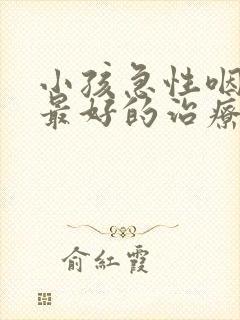 小孩急性咽
最好的治疗
俞红霞